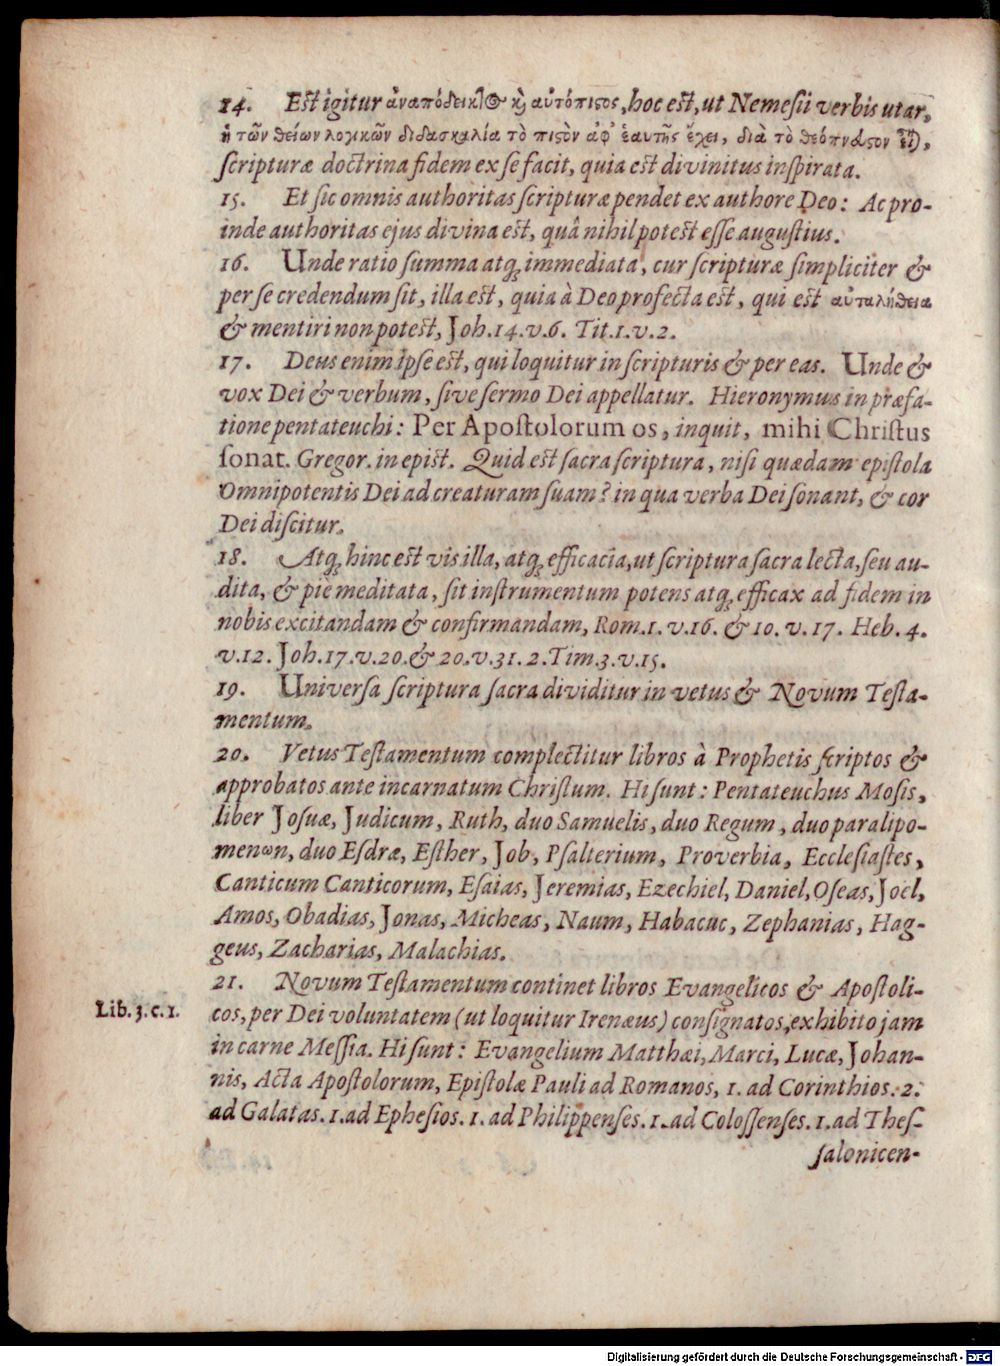 14. Est igitur ἀναπόδεικτος κὶ αὐτόπιστος, hoc est, ut Nemesii verbis utar,
ἡ τῶν θείων λογικῶν διδασκαλία τὸ πιστὸν ἀφ' ἑαυτῆς ἔχει, διὰ τὸ θεόπνευστον εἶναι,
scripturæ doctrina fidem ex se facit, quia est divinitus inspirata.
15. Et sic omnis authoritas scripturæ pendet ex authore Deo: Ac pro-
inde authoritas ejus divina est, quâ nihil potest esse augustius.
16. Unde ratio summa atq; immediata, cur scripturæ simpliciter &
per se credendum sit, illa est, quia à Deo profecta est, qui est αὐταλήθεια
& mentiri non potest, Joh. 14. v. 6. Tit. 1. v. 2.
17. Deus enim ipse est, qui loquitur in scripturis & per eas. Unde &
vox Dei & verbum, sive sermo Dei appellatur. Hieronymus in præfa-
tione pentateuchi: Per Apostolorum os, inquit, mihi Christus
sonat. Gregor. in epist. Quid est sacra scriptura, nisi quædam epistola
Omnipotentis Dei ad creaturam suam? in qua verba Dei sonant, & cor
Dei discitur.
18. Atq; hinc est vis illa, atq; efficacia, ut scriptura sacra lecta, seu au-
dita, & piè meditata, sit instrumentum potens atq; efficax ad fidem in
nobis excitandam & confirmandam, Rom. 1. v. 16. & 10. v. 17. Heb. 4.
v. 12. Joh. 17. v. 20. & 20. v. 31. 2. Tim. 3. v. 15.
19. Universa scriptura sacra dividitur in vetus & Novum Testa-
mentum.
20. Vetus Testamentum complectitur libros à Prophetis scriptos &
approbatos ante incarnatum Christum. Hi sunt: Pentateuchus Mosis,
liber Josuæ, Judicum, Ruth, duo Samuelis, duo Regum, duo paralipo-
menωn, duo Esdræ, Esther, Job, Psalterium, Proverbia, Ecclesiastes,
Canticum Canticorum, Esaias, Jeremias, Ezechiel, Daniel, Oseas, Joel,
Amos, Obadias, Jonas, Micheas, Naum, Habacuc, Zephanias, Hag-
geus, Zacharias, Malachias.
21. Novum Testamentum continet libros Evangelicos & Apostoli-
Lib. 3. c. 1.
cos, per Dei voluntatem (ut loquitur Irenæus) consignatos, exhibito jam
in carne Messia. Hi sunt: Evangelium Matthæi, Marci, Lucæ, Johan-
nis, Acta Apostolorum, Epistolæ Pauli ad Romanos, 1. ad Corinthios. 2.
ad Galatas. 1. ad Ephesios. 1. ad Philippenses. 1. ad Colossenses. 1. ad Thes-
salonicen-
Digitalisierung gefördert durch die Deutsche Forschungsgemeinschaft - DFG